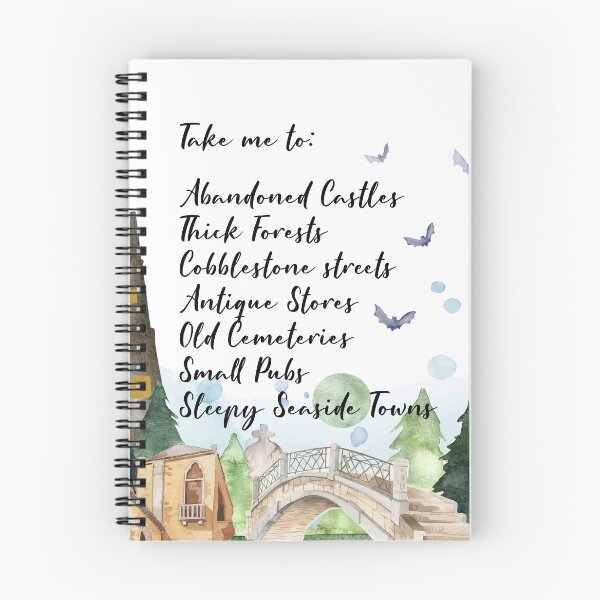 Take me to:
Abandoned Castles
Thick Forests
Cobblestone streets
Antique Stores
Old Cemeteries
Small Pubs
Sleepy Seaside Towns